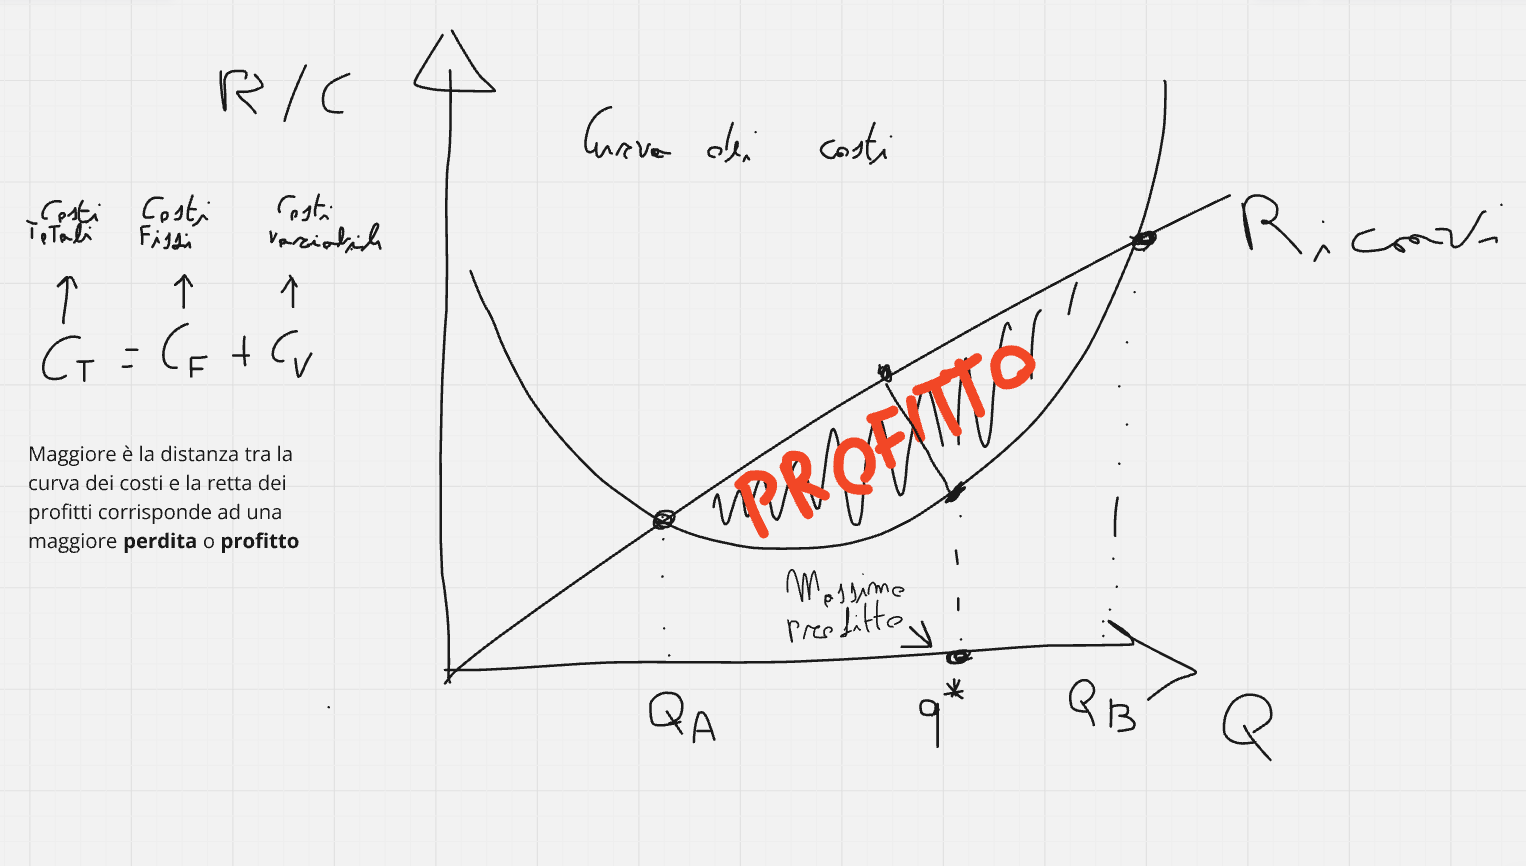 R/C
Curva dei costi
Costi Totali
Costi Fissi
Costi variabili
CT = CF + CV
Maggiore è la distanza tra la
curva dei costi e la retta dei
profitti corrisponde ad una
maggiore perdita o profitto
Ricavi
PROFITTO
Massimo
profitto
QA
q*
QB
Q